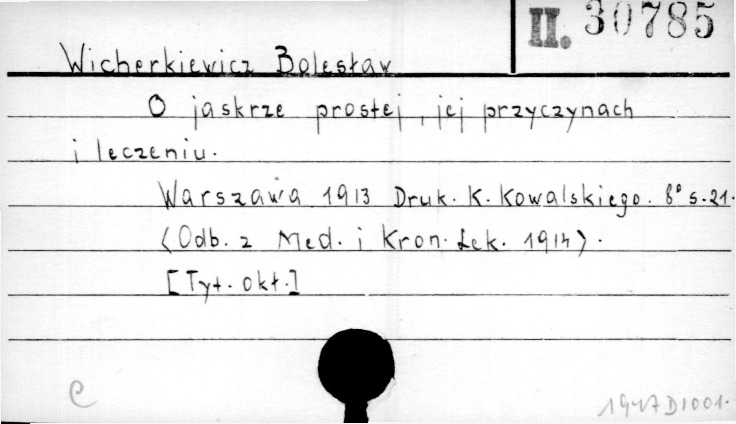 II. 30785
Wicherkiewicz Bolesław
O jaskrze prostej, jej przyczynach
i leczeniu.
Warszawa 1913 Druk. K. Kowalskiego. 8° s. 21.
(Odb. z Med. i Kron. Lek. 1914).
[Tyt. okł.]
e
1947 D 1001.